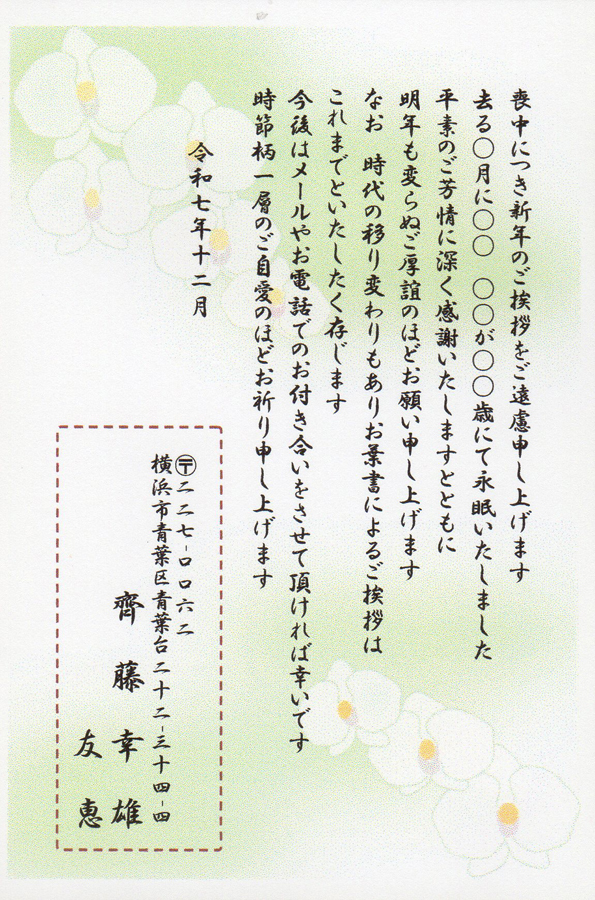 喪中につき新年のご挨拶をご遠慮申し上げます
去る〇月に〇〇　〇〇が〇〇歳にて永眠いたしました
平素のご芳情に深く感謝いたしますとともに
明年も変らぬご厚誼のほどお願い申し上げます
なお　時代の移り変わりもありお葉書によるご挨拶は
これまでといたしたく存じます
今後はメールやお電話でのお付き合いをさせて頂ければ幸いです
時節柄一層のご自愛のほどお祈り申し上げます
令和七年十二月
〶二二七-〇〇六二
横浜市青葉区青葉台二十二-三十四-四
齊藤幸雄
友恵